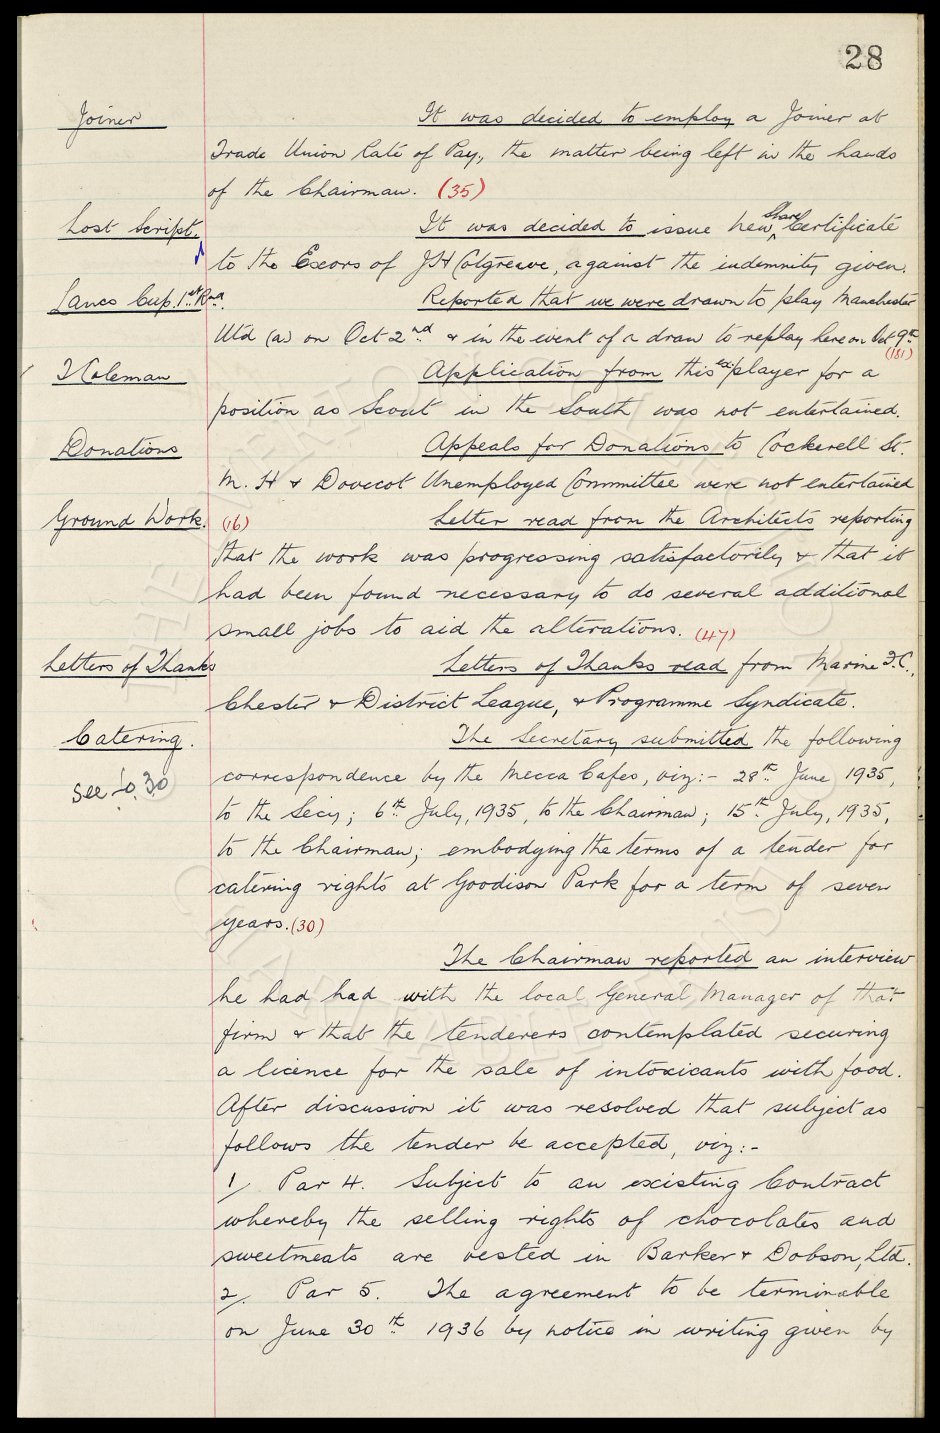 28
Joiner
It was decided to employ a Joiner at
Trade Union Rate of Pay, the matter being left in the hands
of the Chairman. (35)
Lost Script.
It was decided to issue new Share Certificate
to the Exors of J H Colgreave, against the indemnity given.
Lancs Cup. 1st Rnd.
Reported that we were drawn to play Manchester
Utd (a) on Oct 2nd & in the event of a draw to replay here on Oct 9th
(181)
T Coleman
Application from this ex player for a
position as Scout in the South was not entertained.
Donations
Appeals for Donations to Cockerell St.
M. H & Dovecot Unemployed Committee were not entertained
Ground Work.
(16) Letter read from the Architects reporting
that the work was progressing satisfactorily & that it
had been found necessary to do several additional
small jobs to aid the alterations. (47)
Letters of Thanks
Letters of Thanks read from Marine F.C.,
Chester & District League, & Programme Syndicate.
Catering.
The Secretary submitted the following
see fo. 30
correspondence by the Mecca Cafes, viz:- 28th June 1935,
to the Secy; 6th July, 1935, to the Chairman; 15th July, 1935,
to the Chairman; embodying the terms of a tender for
catering rights at Goodison Park for a term of seven
years. (30)
The Chairman reported an interview
he had had with the local General Manager of that
firm & that the tenderers contemplated securing
a licence for the sale of intoxicants with food.
After discussion it was resolved that subject as
follows the tender be accepted, viz:-
1/ Par 4. Subject to an existing Contract
whereby the selling rights of chocolates and
sweetmeats are vested in Barker & Dobson, Ltd.
2/. Par 5. The agreement to be terminable
on June 30th 1936 by notice in writing given by